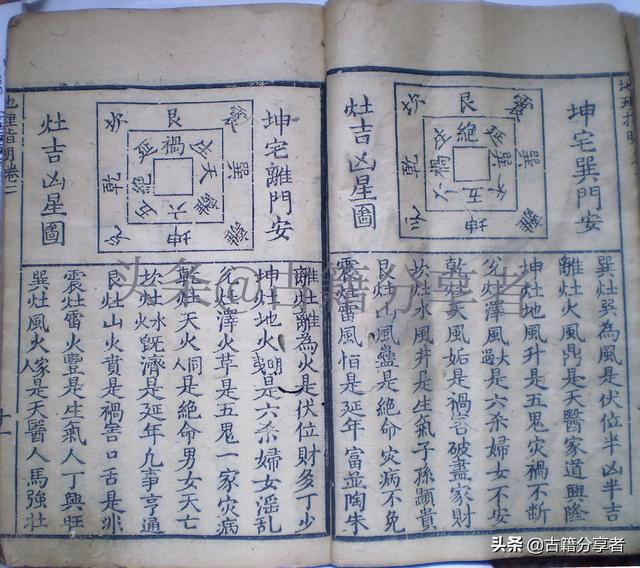 坤宅巽門安
灶吉凶星圖
坎 艮 震
絕 延
乾 禍 巽 巽
五
坤 離
巽灶巽為風是伏位半凶半吉
離灶火風鼎是天醫家道興隆
坤灶地風升是五鬼灾禍不断
兌灶澤風大過是六杀婦女不安
乾灶天風姤是禍害破盡家財
坎灶水風井是生氣子孫顕貴
艮灶山風蠱是絕命灾病不免
震灶雷風恒是延年富並陶朱
坤宅離門安
灶吉凶星圖
坎 艮 震
延 禍
乾 絕 天 巽
五 六 離
坤 離
離灶離為火是伏位財多丁少
坤灶地火明夷是六杀婦女滛乱
兌灶澤火草是五鬼一家灾病
乾灶天火同人是絕命男女夭亡
坎灶水火既濟是延年凢事亨通
艮灶山火賁是禍害口舌是非
震灶雷火豐是生氣人丁興旺
巽灶風火家人是天醫人馬強壮
地理指明卷二
头条@古籍分享者
头条 @古籍分享者